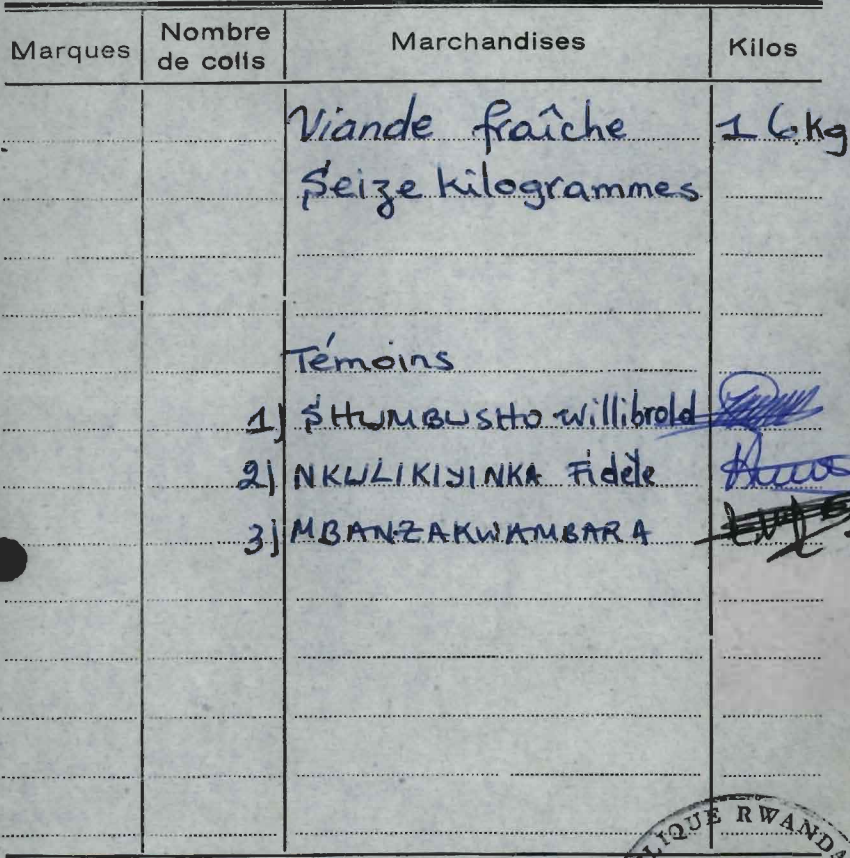 Marques Nombre de colis Marchandises Kilos
Viande fraîche 16 kg
Seize kilogrammes
Témoins
1) SHUMBUSHO Willibrold
2) NKULIKIYINKA Fidèle
3) MBANZAKWAMBARA
BLIQUE RWANDA